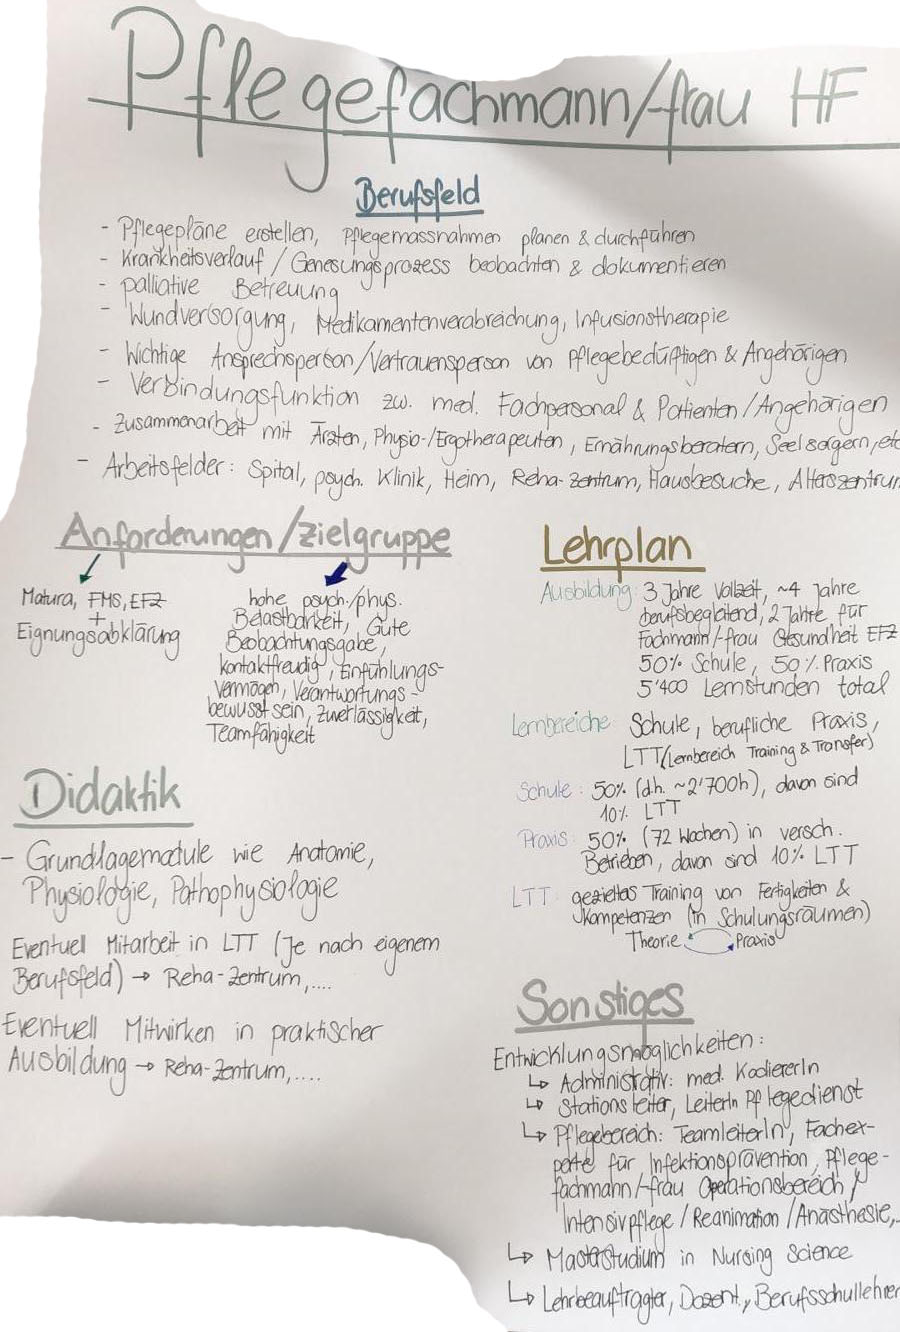 Pflegefachmann/-frau HF
Berufsfeld
- Pflegepläne erstellen, Pflegemassnahmen planen & durchführen
- Krankheitsverlauf / Genesungsprozess beobachten & dokumentieren
- palliative Betreuung
- Wundversorgung, Medikamentenverabreichung, Infusionstherapie
- Wichtige Ansprechsperson/Vertrauensperson von Pflegebedürftigen & Angehörigen
- Verbindungsfunktion zw. med. Fachpersonal & Patienten/Angehörigen
- Zusammenarbeit mit Ärzten, Physio-/Ergotherapeuten, Ernährungsberatern, Seelsorgern, etc
- Arbeitsfelder: Spital, psych. Klinik, Heim, Reha-Zentrum, Hausbesuche, Alterszentrum
Anforderungen/Zielgruppe
Matura, FMS, EFZ
+
Eignungsabklärung
hohe psych./phys.
Belastbarkeit, Gute
Beobachtungsgabe,
kontaktfreudig, Einfühlungs-
vermögen, Verantwortungs-
bewusstsein, Zuverlässigkeit,
Teamfähigkeit
Didaktik
- Grundlagemodule wie Anatomie,
Physiologie, Pathophysiologie
Eventuell Mitarbeit in LTT (Je nach eigenem
Berufsfeld) → Reha-Zentrum,....
Eventuell Mitwirken in praktischer
Ausbildung → Reha-Zentrum,....
Lehrplan
Ausbildung: 3 Jahre Vollzeit, ~4 Jahre
berufsbegleitend, 2 Jahre für
Fachmann/-frau Gesundheit EFZ
50% Schule, 50% Praxis
5'400 Lernstunden total
Lernbereiche: Schule, berufliche Praxis,
LTT (Lernbereich Training & Transfer)
Schule: 50% (d.h. ~2'700h), davon sind
10% LTT
Praxis: 50% (72 Wochen) in versch.
Betrieben, davon sind 10% LTT
LTT: gezieltes Training von Fertigkeiten &
Kompetenzen (in Schulungsräumen)
Theorie Praxis
Sonstiges
Entwicklungsmöglichkeiten:
↳ Administrativ: med. KodiererIn
↳ Stationsleiter, LeiterIn Pflegedienst
↳ Pflegebereich: TeamleiterIn, Fachex-
perte für Infektionsprävention, Pflege-
fachmann/-frau Operationsbereich/
Intensivpflege/Reanimation/Anästhesie,..
↳ Masterstudium in Nursing Science
↳ Lehrbeauftragter, Dozent, Berufsschullehrer